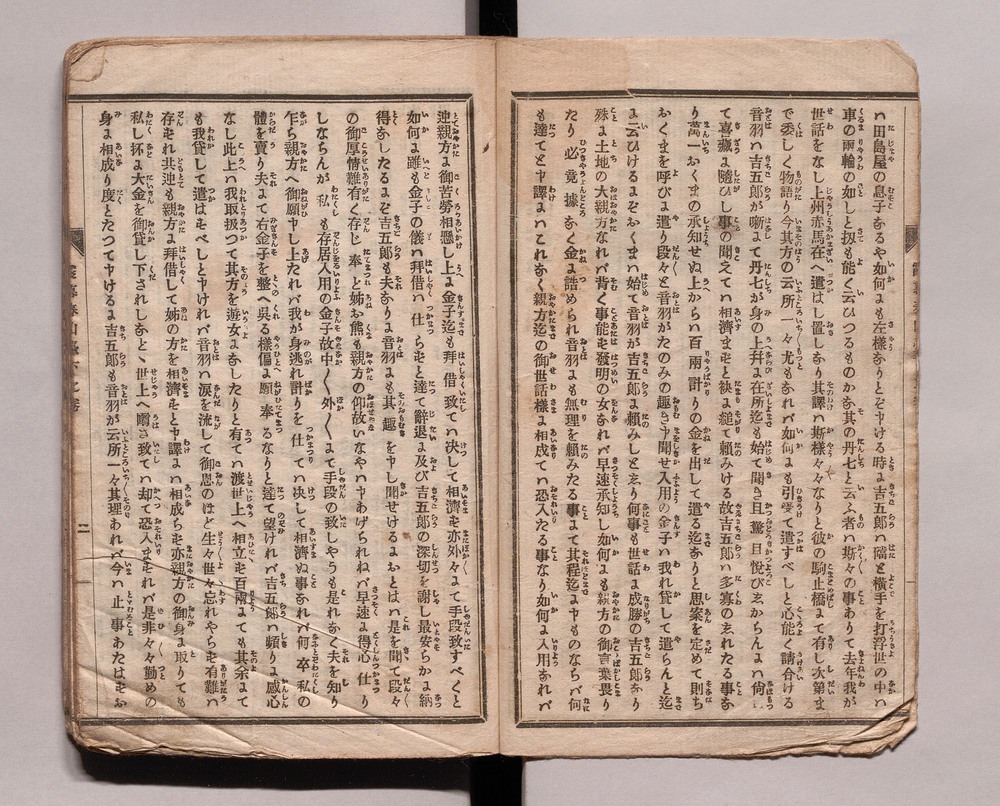 田島屋の息子なるや如何にも左様なりと申ける時に吉五郎ハ礑と横手を打浮世の中ハ
車の両輪の如しと扨も能く云ひつるものかな其の丹七と云ふ者ハ斯々の事ありて去年我が
世話をなし上州赤馬在へ遣はし置しなり其訳ハ斯様々々なりと彼の駒止橋にて有し次第ま
で委しく物語り今其方の云所一々尤もなれバ如何にも引受て遣すべしと心能く請合ける
音羽ハ吉五郎が噺にて丹七が身の上并に在所迄も始て聞き且驚且悦び
て喜蔵に随ひし事の聞えてハ相済まずと袂に縋て賴みける故吉五郎ハ多寡の知れたる事な
り萬一おくまの承知せぬ上からハ百両計りの金を出して遣る迄なりと思案を定めて則ち
おくまを呼びに遣り段々と音羽がたのみの趣き申聞せ入用の金子ハ我れ貸して遣らんと迄
に云ひけるにぞおくまハ始て音羽が吉五郎に賴みしと知り何事も世話に成勝の吉五郎なり
殊に土地の大親方なれバ背く事能ず發明の女なれバ早速承知し如何にも親方の御言葉畏り
たり必竟據なく金に詰められ音羽にも無理を賴みたる事にて其程迄にものならバ何
も達てと申譯にハこれなく親方迄の御世話樣に相成てハ恐入たる事なり如何に入用なれバ
迚親方に御苦勞相懸し上に金子迄も拜借致てハ决して相濟ず亦外々にて手段致すべくと
如何に雖も金子の儀ハ拜借ハ仕らずと達て辭退に及び吉五郎の深切を謝し最安らかに納
得なしたるにぞ吉五郎も夫なりに音羽にも其趣を申し聞せけるにおとはハ是を聞て段々
の御厚情難有く存じ奉と姉お熊も親方の仰故いなやハ申あげられねバ早速に得心仕り
しならんが私も存居入用の金子故中々外々にて手段の致しやうも是れなく夫を知り
乍ら親方へ御願申し上たれバ我が身逃れ計りを仕てハ决して相濟ぬ事なれバ何卒私の
體を賣り夫にて右金子を整へ吳る樣偏に願奉るなりと達て望けれバ吉五郎ハ頻りに感心
なし此上ハ我取扱つて其方を遊女になしたりと有てハ渡世上へ相立ず百両にても其余にて
も我貸して遣はすべしと申けれバ音羽ハ涙を流して御恩のほど生々世々忘れやらず有難ハ
存ずれ共迚も親方に拜借して姊の方を相濟すと申譯にハ相成らず亦親方の御身に取りても
私し抔に大金を御貸し下されしなど世上へ爾さ致てハ却て恐入ますれバ是非々々勤めの
身に相成り度とたつて申けるに吉五郎も音羽が云所一々其理あれバ今ハ止事あたはずお
二